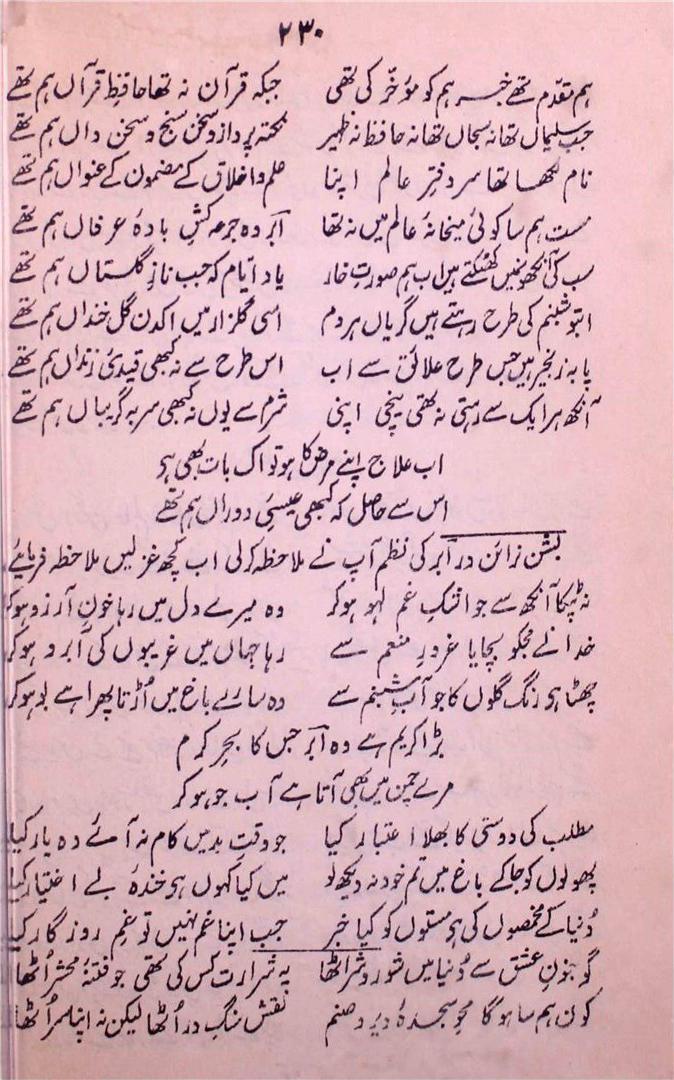 ۲۳۰
ہم مقدّم تھے خبر ہم کو مؤخّر کی تھی جبکہ قرآن نہ تھا حافظِ قرآں ہم تھے
جب سلیماں تھا نہ سحباں تھا نہ حافظ نہ ظہیر نکتہ پرداز و سخن سنج و سخن داں ہم تھے
نام لکھا تھا سر دفترِ عالم اپنا علم و اخلاق کے مضمون کے عنواں ہم تھے
مست ہم سا کوئی میخانۂ عالم میں نہ تھا ابر وہ جرعہ کشِ بادۂ عرفاں ہم تھے
سب کی آنکھونمیں کھٹکتے ہیں اب ہم صورتِ خار یاد ایّام کہ جب نازِ گلستاں ہم تھے
ابتو شبنم کی طرح رہتے ہیں گریاں ہر دم اسی گلزار میں اکدن گل خنداں ہم تھے
پا بہ زنجیر ہیں جس طرح علائق سے اب اس طرح سے نہ کبھی قیدیٔ زنداں ہم تھے
آنکھ ہر ایک سے رہتی نہ تھی نیچی اپنی شرم سے یوں نہ کبھی سر بہ گریباں ہم تھے
اب علاج اپنے مرض کا ہو تو اک بات بھی ہی
اس سے حاصل کہ کبھی عیسیٔ دوراں ہم تھے
بشن نرائن در ابر کی نظم آپ نے ملاحظہ کرلی اب کچھ غزلیں ملاحظہ فرمایئے
نہ ٹپکا آنکھ سے جو اشکِ غم لہو ہوکر وہ میرے دل میں رہا خونِ آرزو ہوکر
خدا نے مجکو بچایا غرورِ منعم سے رہا جہاں میں غریبوں کی آبرو ہوکر
چھٹا ہی رنگ گلوں کا جو آبِ شبنم سے وہ سارے باغ میں اُڑتا پھرا ہے بو ہوکر
بڑا کریم ہے وہ ابر جس کا بحرِ کرم
مرے چمن میں بھی آتا ہے آب جو ہوکر
مطلب کی دوستی کا بھلا اعتبار کیا جو وقتِ بد میں کام نہ آئے وہ یار کیا
پھولوں کو جاکے باغ میں تم خود نہ دیکھ لو میں کیا کہوں ہی خندۂ بے اختیار کیا
دُنیا کے مخصوں کی ہی مستوں کو کیا خبر جب اپنا غم نہیں تو غمِ روزگار کیا
گو جنونِ عشق سے دُنیا میں شور و شر اٹھا یہ شرارت کس کی تھی جو فتنۂ محشر اُٹھا
کون ہم سا ہوگا محوِ سجدۂ دیر و صنم نقشِ سنگِ در اُٹھا لیکن نہ اپنا سر اُٹھا